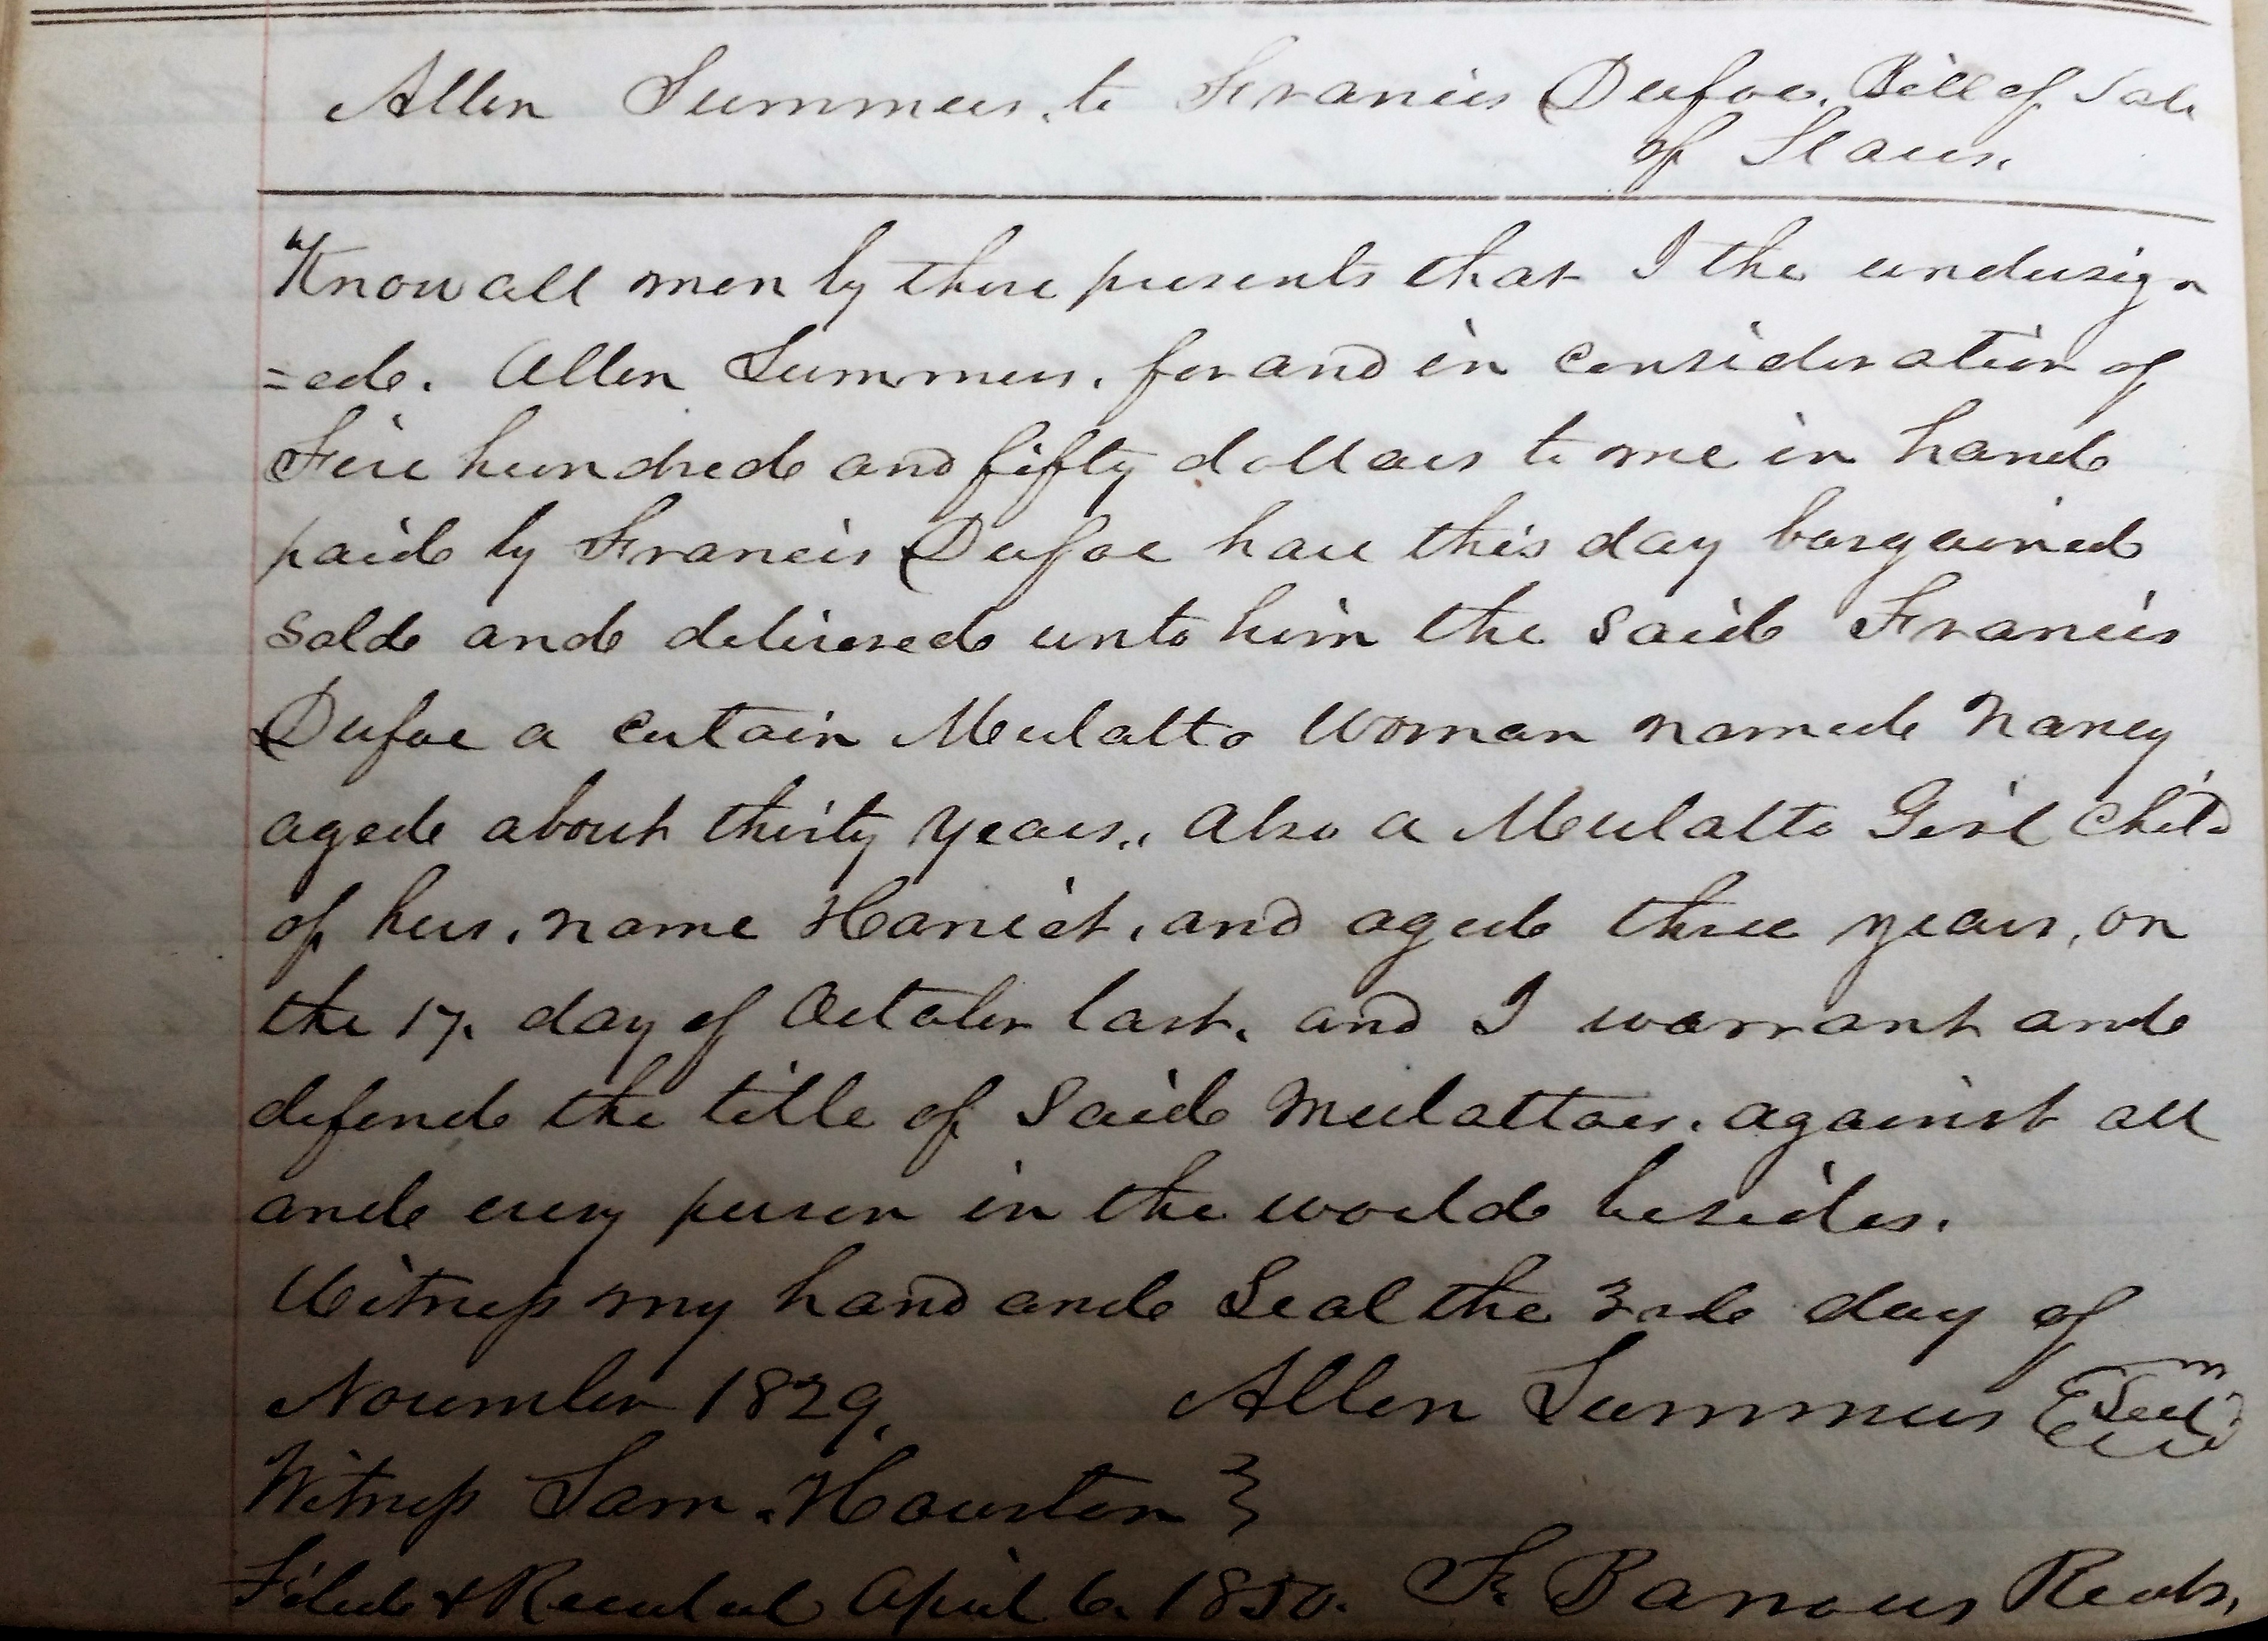 Allen Summers, to Francis Dufoe. Bill of Sale
of Slaves.
Know all men by these presents that I the undersign
=ed. Allen Summers. for and in consideration of
Five hundred and fifty dollars to me in hand
paid by Francis Dufoe have this day bargained
Sold and delivered unto him the said Francis
Dufoe a certain Mulatto Woman named Nancy
aged about thirty years., Also a Mulatto Girl child
of hers, name Hariet, and aged three years, on
the 17. day of October last. and I warrant and
defend the title of said Mulattoes. against all
and every person in the world besides.
Witness my hand and Seal the 3rd day of
November 1829. Allen Summers Seal
Witness Sam. Houston }
Filed & Recorded April 6. 1850. Recdr.